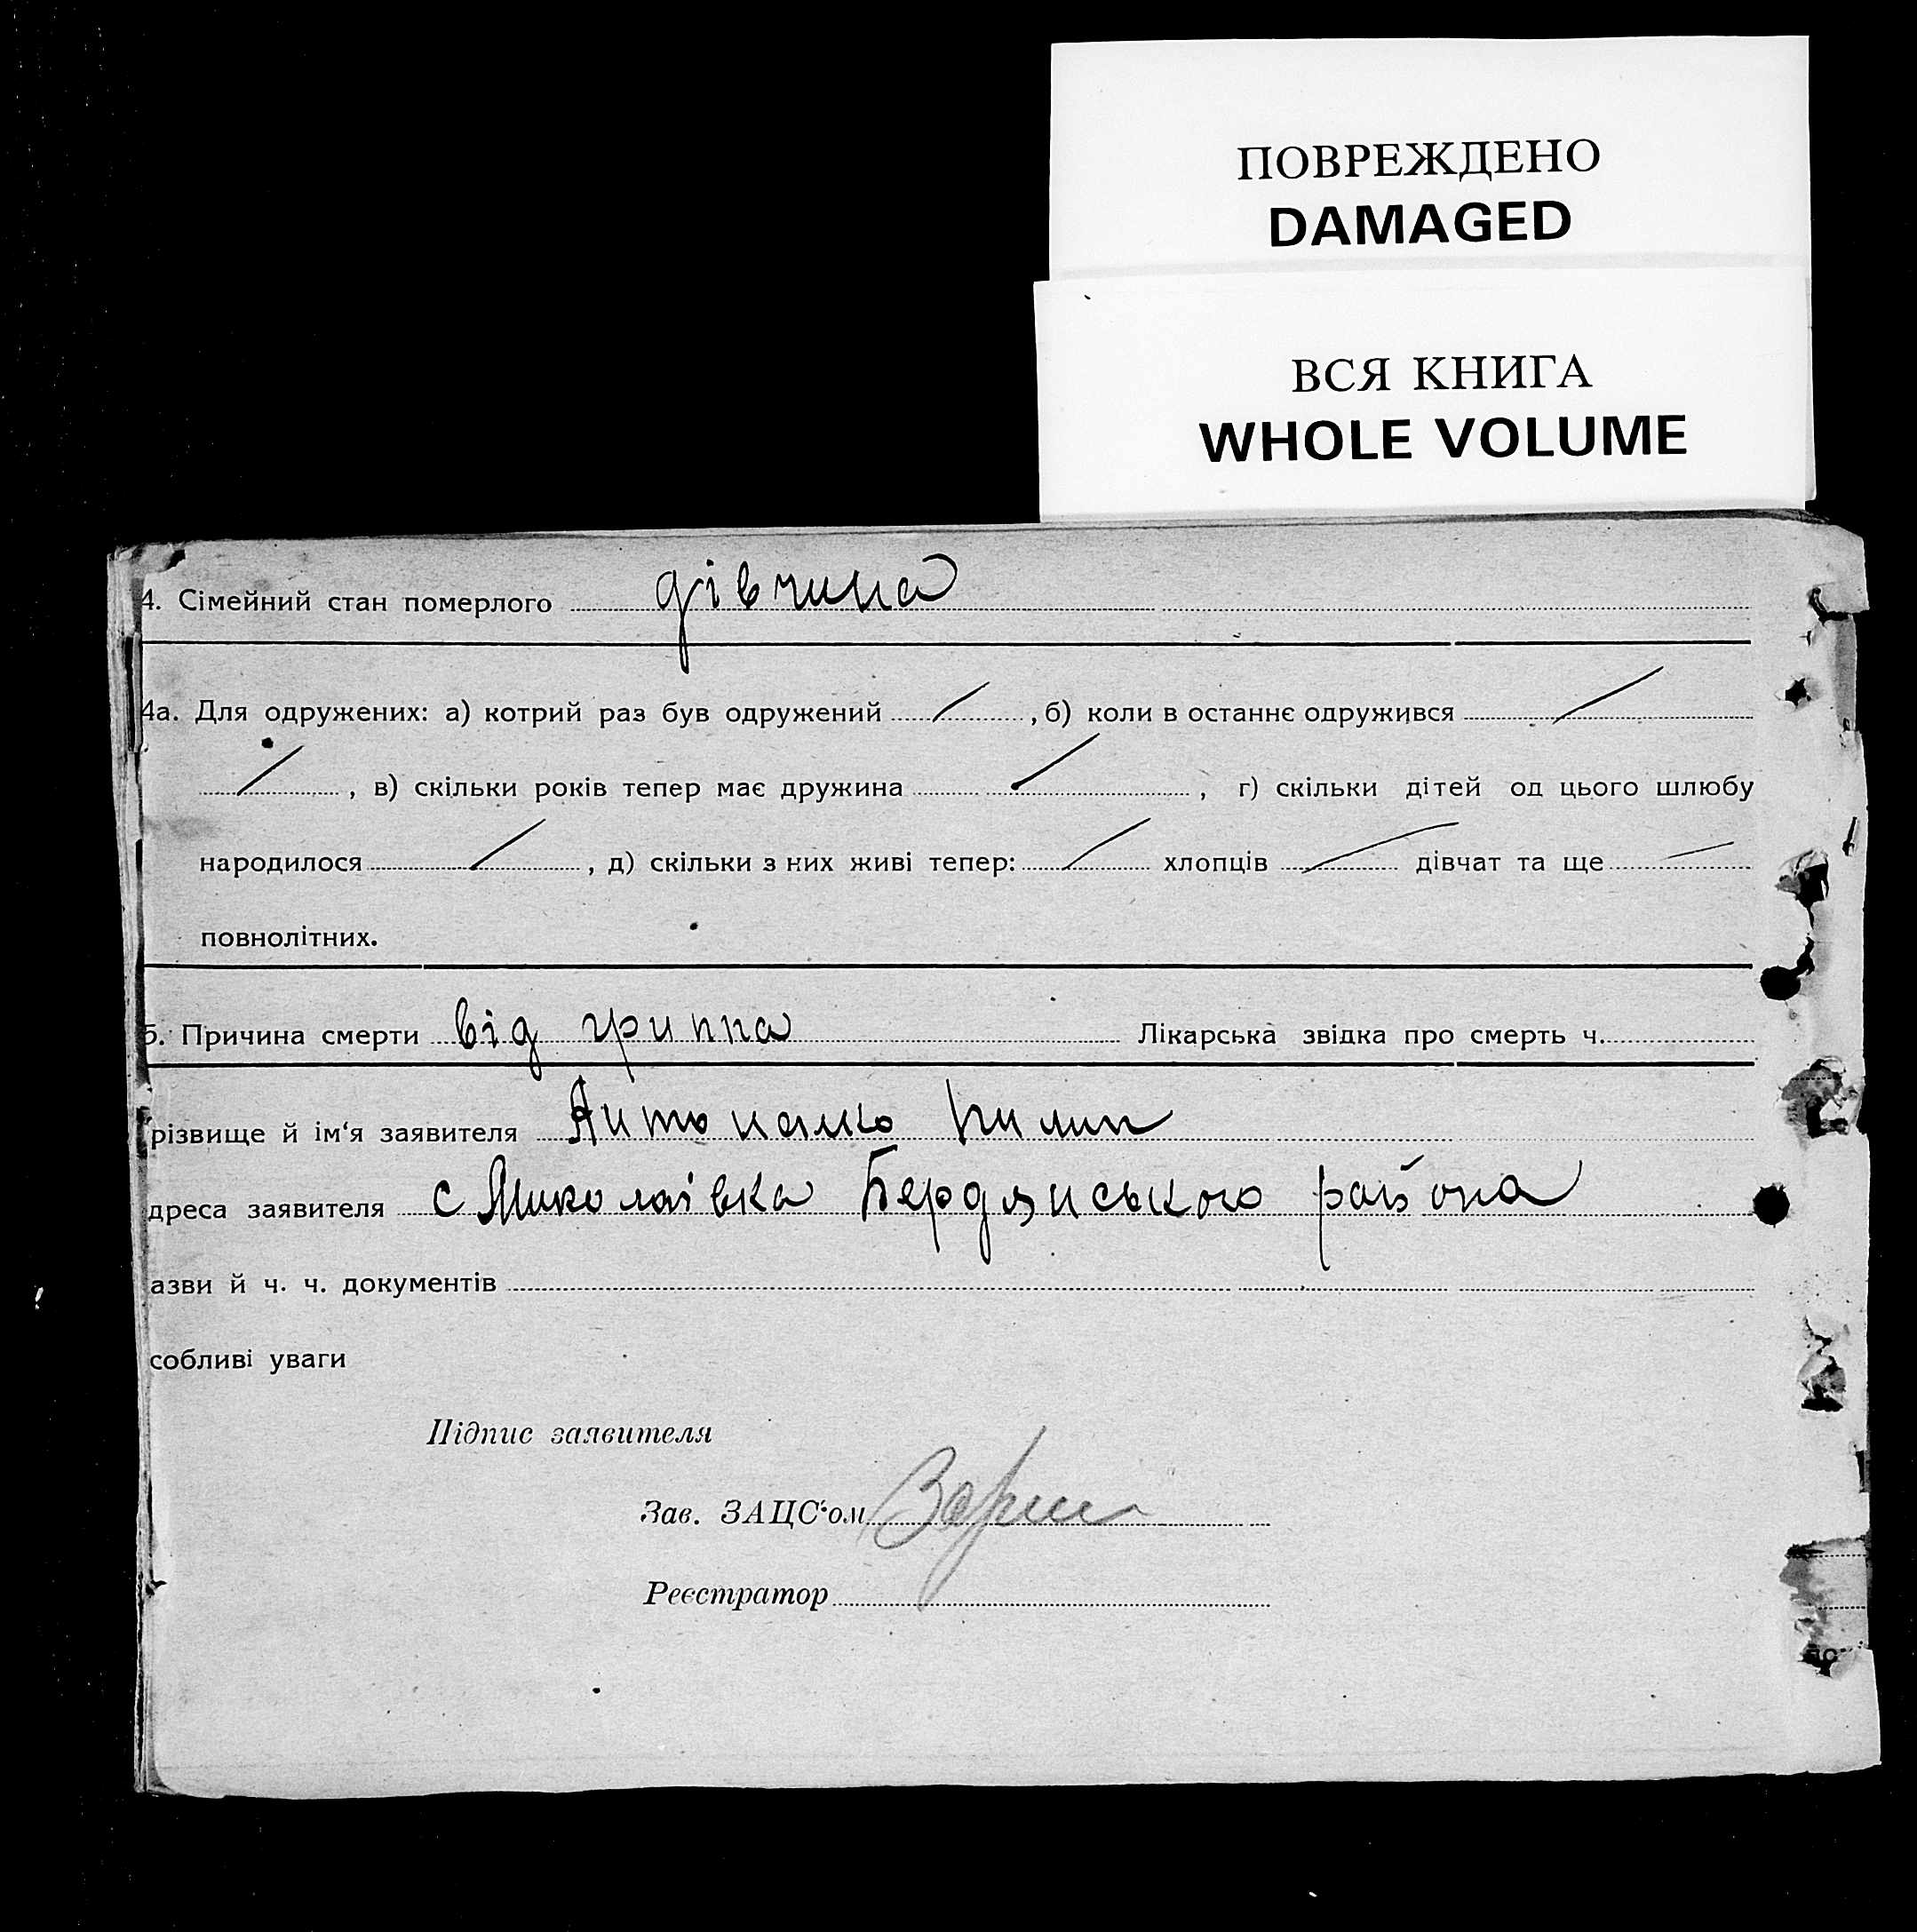 ПОВРЕЖДЕНО
DAMAGED
ВСЯ КНИГА
WHOLE VOLUME
4. Сімейний стан померлого дівчина
4а. Для одружених: а) котрий раз був одружений , б) коли в останнє одружився
, в) скільки років тепер має дружина , г) скільки дітей од цього шлюбу
народилося , д) скільки з них живі тепер: хлопців дівчат та ще
повнолітних.
5. Причина смерти від гриппа Лікарська звідка про смерть ч.
різвище й ім'я заявителя Пилип
дреса заявителя с Миколаївка Бердянського района
азви й ч. ч. документів
собливі уваги
Підпис заявителя
Зав. ЗАЦС'ом
Реєстратор